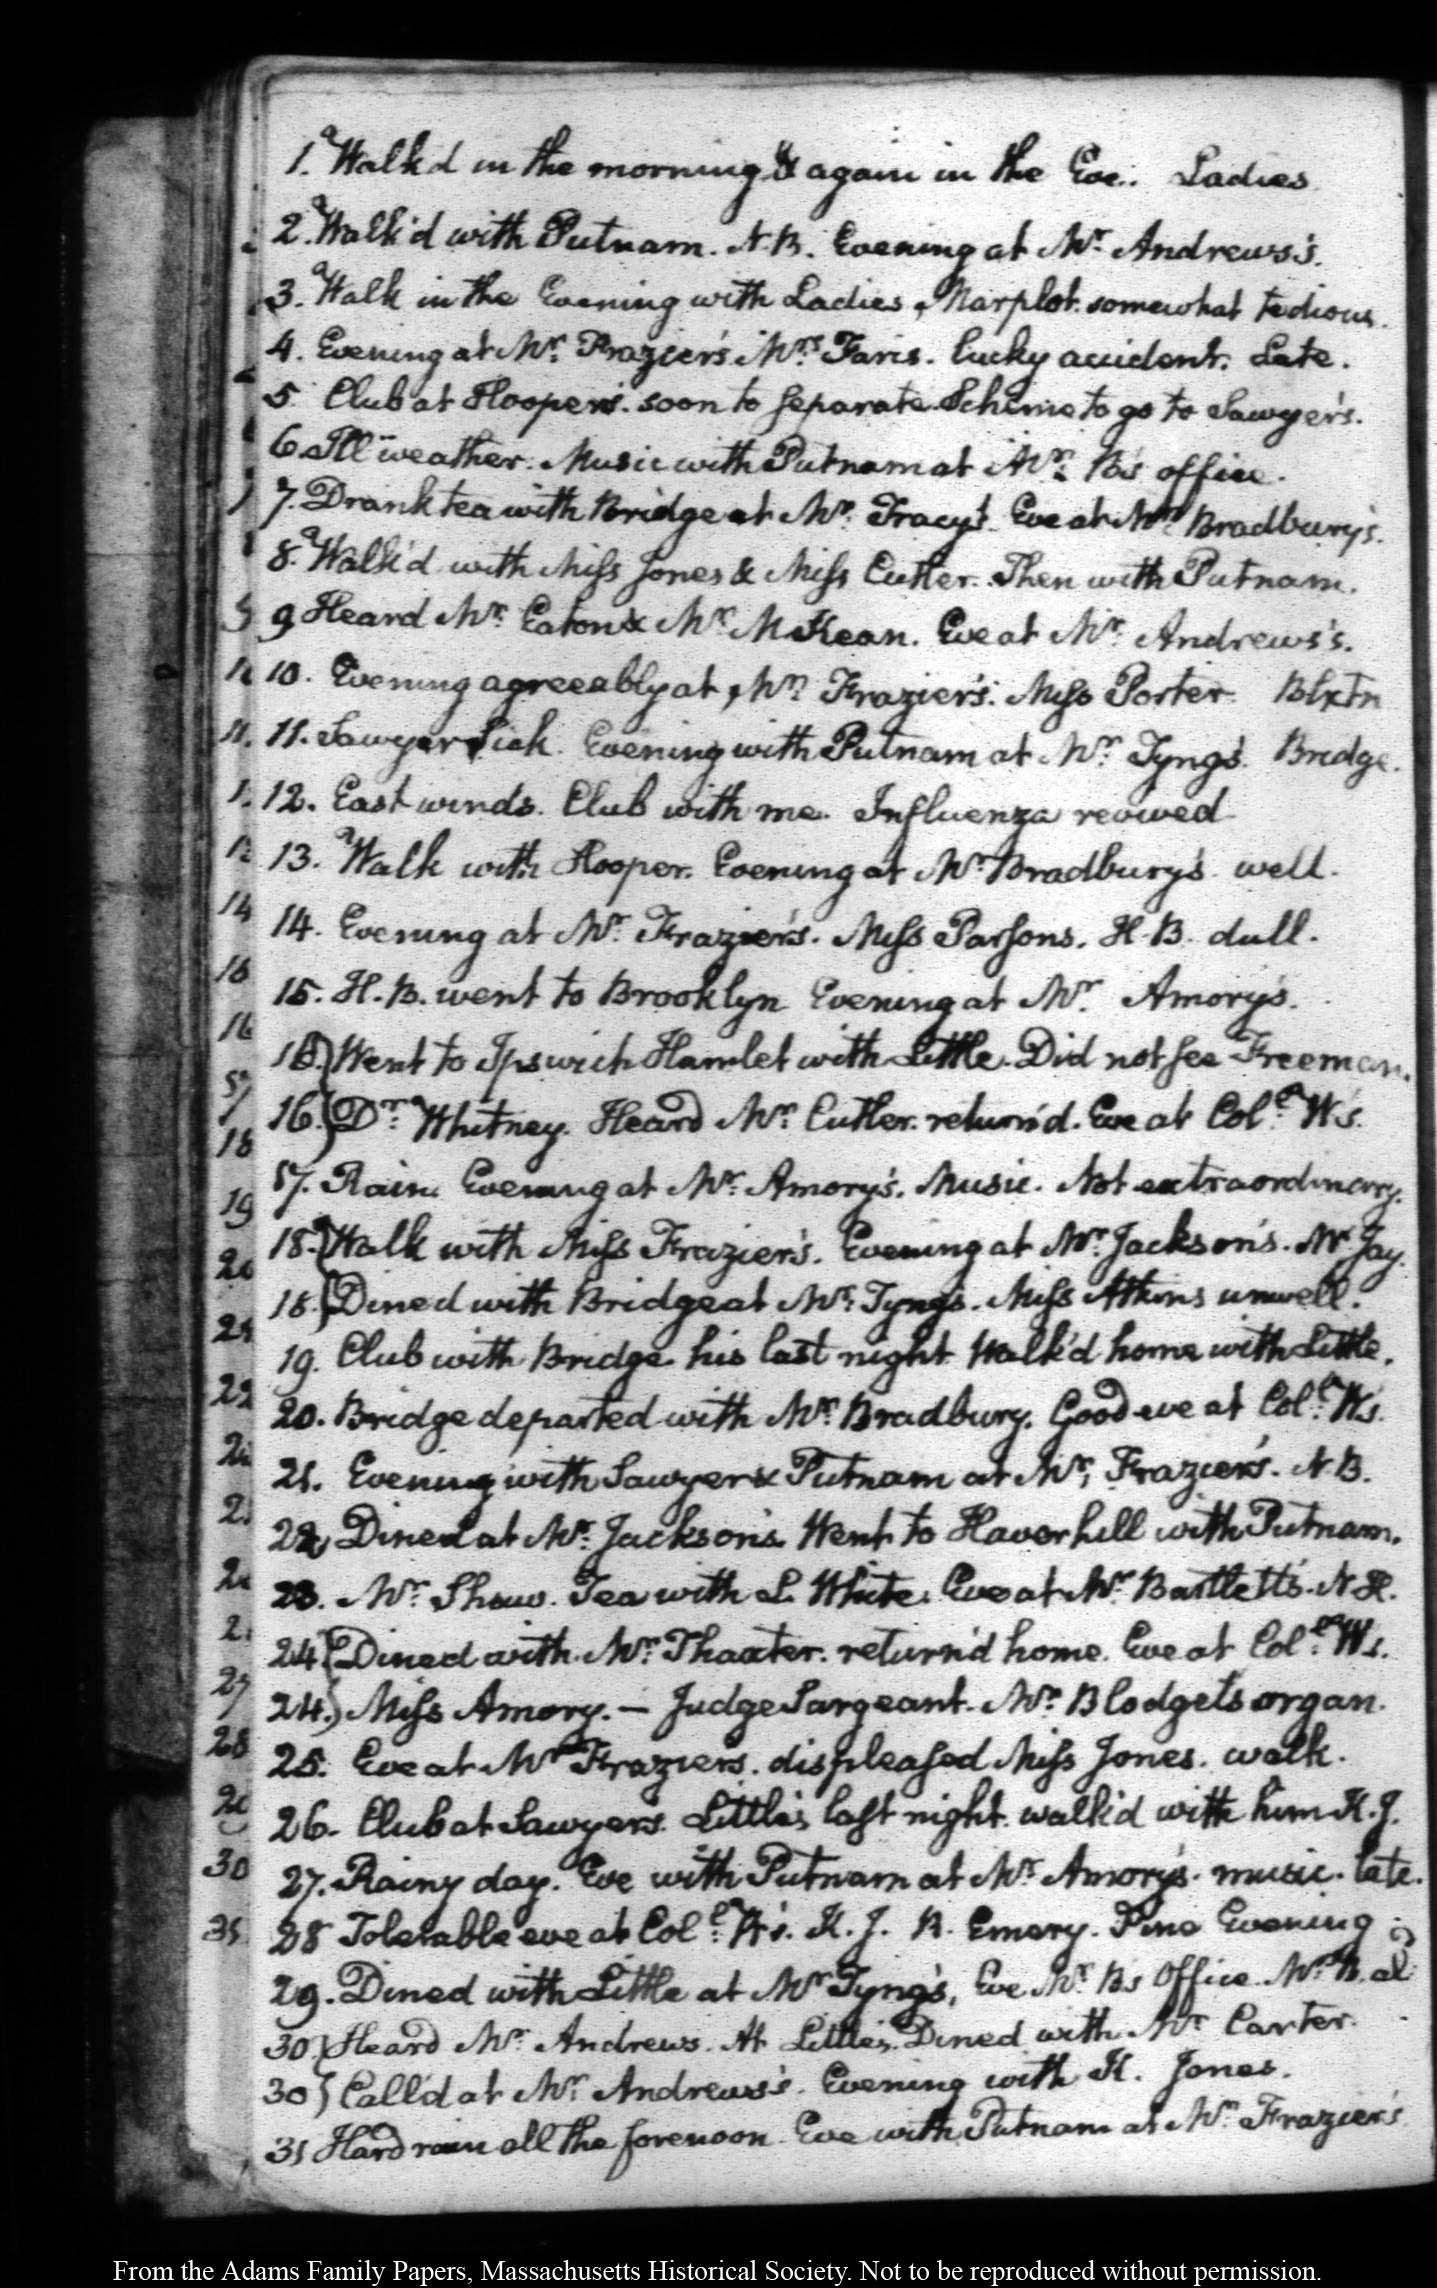 1. Walk'd in the morning, & again in the Eve. Ladies
2. Walk'd with Putnam. N.B. Evening at Mr. Andrews's.
3. Walk in the Evening with Ladies, Marplot. somewhat tedious.
4. Evening at Mr. Frazier's. Mrs. Faris. lucky accident. Late.
5. Club at Hooper's. soon to separate. Scheme to go to Sawyer's.
6. Ill weather. Music with Putnam at Mr. B's office.
7. Drank tea with Bridge at Mr. Tracy's. Eve at Mr. Bradbury's.
8. Walk'd with Miss Jones & Miss Cutler. Then with Putnam.
9 Heard Mr. Eaton & Mr. McKean. Eve at Mr. Andrews's.
10. Evening agreeably at Mr. Frazier's. Miss Porter
11. Sawyer sick. Evening with Putnam at Mr. Tyng's. Bridge.
12. East winds. Club with me. Influenza revived
13. Walk with Hooper. Evening at Mr. Bradbury's. well.
14. Evening at Mr. Frazier's. Miss Parsons. H.B. dull.
15. H.B. went to Brooklyn Evening at Mr. Amory's.
16.} Went to Ipswich Hamlet with Little. Did not see Freeman.
16.} Dr. Whitney. Heard Mr. Cutler. return'd. Eve at Coll. W's.
17. Rain. Evening at Mr. Amory's. Music. Not extraordinary.
18.} Walk with Miss Frazier's. Evening at Mr. Jackson's. Mr Jay.
18.} Dined with Bridge at Mr. Tyng's. Miss Atkins unwell.
19. Club with Bridge his last night. Walk'd home with Little.
20. Bridge departed with Mr. Bradbury. Good eve at Coll. W's.
21. Evening with Sawyer & Putnam at Mr. Frazier's. N.B.
22. Dined at Mr. Jackson's. Went to Haverhill with Putnam.
23. Mr. Shaw. Tea with L. White. Eve at Mr. Bartlett's. N.H.
24.} Dined with Mr. Thaxter. return'd home. Eve at Coll. W's.
24.} Miss Amory. — Judge Sargeant. Mr. Blodgets organ.
25. Eve at Mr. Frazier's. displeased Miss Jones. walk.
26. Club at Sawyers. Little's last night. walk'd with him H.J.
27. Rainy day. Eve with Putnam at Mr. Amory's. music. late.
28 Tolerable eve at Coll. W's. H.J. R. Emery. Fine Evening
29. Dined with Little at Mr. Tyng's, Eve Mr. Bs Office. Mr. B. al
30} Heard Mr. Andrews. At Little's. Dined with Mr. Carter.
30} Call'd at Mr. Andrews's. Evening with H. Jones.
31 Hard rain all the forenoon. Eve with Putnam at Mr. Frazier's
From the Adams Family Papers, Massachusetts Historical Society. Not to be reproduced without permission.